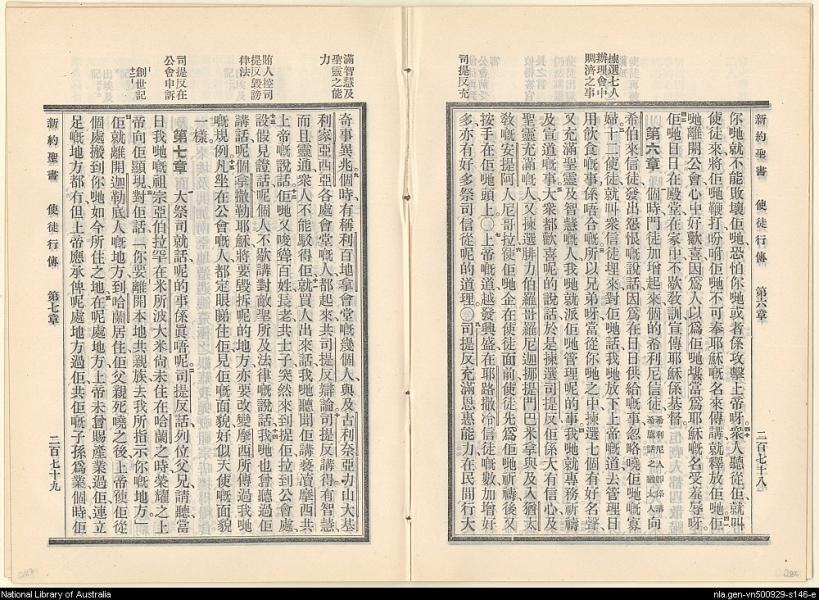 新約聖書 使徒行傳 第六章 二百七十八
揀選七人
辦理會中
賙濟之事
司提反充
你哋就不能敗壞佢哋恐怕你哋或者係攻擊上帝呀衆人聽從佢就叫
使徒來將佢哋鞭打吩咐佢哋不可奉耶穌嘅名來傳講就釋放佢哋佢
哋離開公會心中好歡喜因爲人以爲佢哋堪當爲耶穌嘅名受羞辱呀
佢哋日日在殿堂在家中不歇敎訓宣傳耶穌係基督
第六章 個時門徒加增起來個的希利尼信徒希利尼人卽係講希臘話之猶太人向
希伯來信徒發出怨恨嘅說話因爲在日日供給嘅事忽略曉佢哋嘅寡
婦十二使徒就叫衆信徒埋來對佢哋話我哋放下上帝嘅道去管理日
用飲食嘅事係唔合嘅所以兄弟呀當從你哋之中揀選七個有好名聲
又充滿聖靈及智慧嘅人我哋就派佢哋管理呢的事我哋就專務祈禱
及宣道嘅事大衆都歡喜呢的說話於是揀選司提反佢係大有信心及
聖靈充滿嘅人又揀選腓力伯羅哥羅尼迦挪提門巴米拿與及入猶太
敎嘅安提阿人尼哥拉使佢哋企在使徒面前使徒先爲佢哋祈禱後又
按手在佢哋頭上〇上帝嘅道越發興盛在耶路撒冷信徒嘅數加增好
多亦有好多祭司信從呢的道理〇司提反充滿恩惠能力在民間行大
滿智慧及
聖靈之能
力
賄人控司
提反毀謗
律法
司提反在
公會申訴
創世記
十二
奇事異兆個時有稱利百地拿會堂嘅幾個人與及古利奈亞力山大基
利家亞西亞各處會堂嘅人都起來共司提反辯論司提反講得有智慧
而且靈通衆人不能駁得佢就買人出來話我哋聽聞佢講褻瀆摩西共
上帝嘅說話佢哋又唆聳百姓長老共士子突然來到捉佢拉到公會處
設假見證話呢個人不歇講對敵聖所及法律嘅說話我哋也曾聽過佢
講話呢個拿撒勒耶穌將要毀拆呢的地方亦要改變摩西所傳過我哋
嘅規例凡坐在公會嘅人都定眼睇住佢見佢嘅面貌好似天使嘅面貌
一樣
第七章 大祭司就話呢的事係眞唔呢司提反話列位父兄請聽當
日我哋嘅祖宗亞伯拉罕在米所波大米尚未住在哈蘭之時榮耀之上
帝向佢顯現對佢話「你要離開本地共親族去我所指示你嘅地方」
佢就離開迦勒底人嘅地方到哈蘭居住佢父親死曉之後上帝使佢從
個處搬到你哋如今所住之地在呢處地方上帝未曾賜產業過佢連立
足嘅地方都冇但上帝應承俾呢處地方過佢共佢嘅子孫爲業個時佢
新約聖書 使徒行傳 第七章 二百七十九
National Library of Australia
nla.gen-vn500929-s146-e